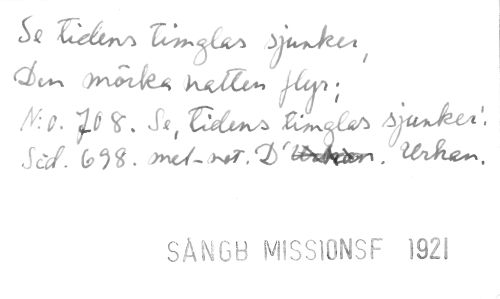 Se tidens timglas sjunker,
Den mörka natten flyr;
N:o. 708. Se, tidens timglas sjunker!
Sid. 698. mel-not. D' Urhan.
SÅNGB MISSIONSF 1921